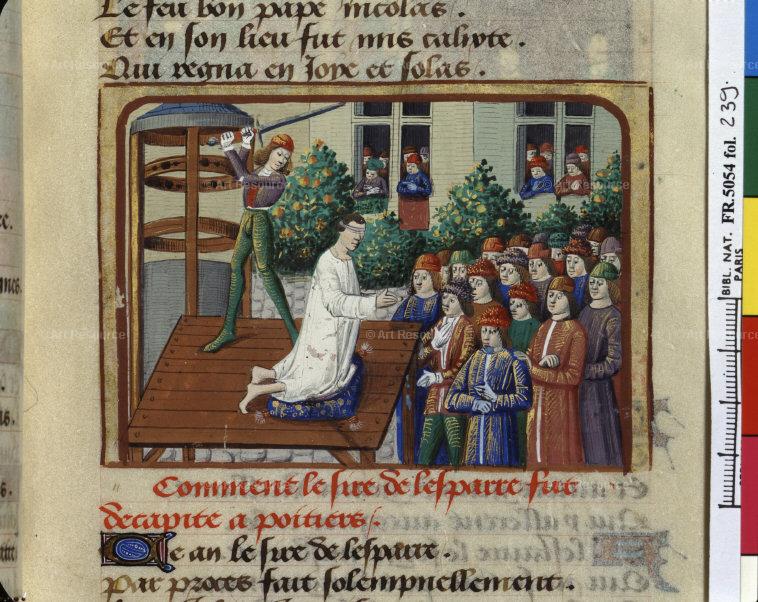 Le feu bon pape nicolas.
Et en son lieu fut mis calixte.
Qui regna en Joye et solas.
Comment le sire de lesparre fut
decapite a poitiers.
Jean le sire de lesparre.
par proces fait solempnellement.
BIBL. NAT. FR.5054 fol. 239.
PARIS
© Art Resource